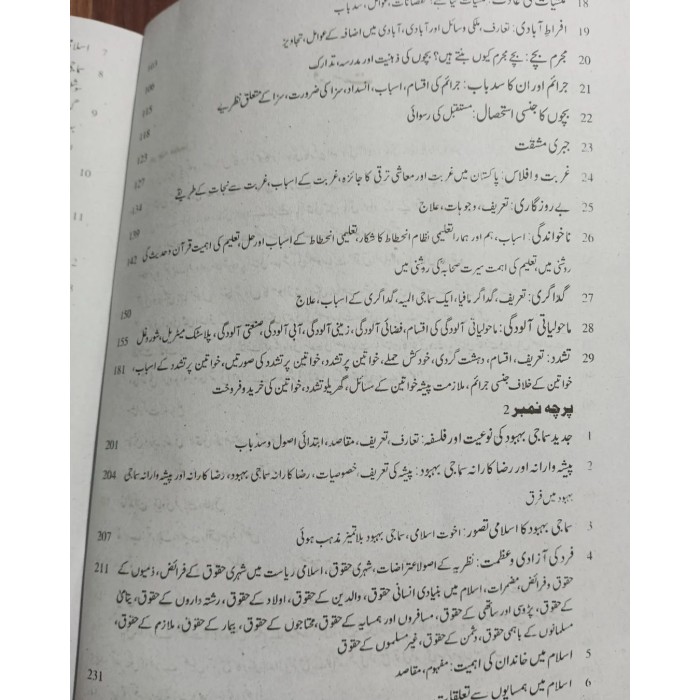 18 منشیات کی عادت: منشیات کیا ہے؟ نقصانات، عوامل، سدباب
19 افراطِ آبادی: تعارف، ملکی وسائل اور آبادی، آبادی میں اضافہ کے عوامل، تجاویز
20 مجرم بچے: بچے مجرم کیوں بنتے ہیں؟ بچوں کی ذہنیت اور مدرسہ، تدارک 103
21 جرائم اور ان کا سدباب: جرائم کی اقسام، اسباب، انسداد، سزا کی ضرورت، سزا کے متعلق نظریے
22 بچوں کا جنسی استحصال: مستقبل کی رسوائی
23 جبری مشقت
24 غربت و افلاس: پاکستان میں غربت اور معاشی ترقی کا جائزہ، غربت کے اسباب، غربت سے نجات کے طریقے
25 بے روزگاری: تعریف، وجوہات، علاج 134
26 ناخواندگی: اسباب، ہم اور ہمارا تعلیمی نظام انحطاط کا شکار، تعلیمی انحطاط کے اسباب اور حل، تعلیم کی اہمیت قرآن و حدیث کی 142
روشنی میں، تعلیم کی اہمت سیرت صحابہ کی روشنی میں
27 گداگری: تعریف، گداگر مافیا، ایک سماجی المیہ، گداگری کے اسباب، علاج 150
28 ماحولیاتی آلودگی: ماحولیاتی آلودگی کی اقسام، فضائی آلودگی، زمینی آلودگی، آبی آلودگی، صنعتی آلودگی، پلاسٹک میٹریل، شور و غل 155
29 تشدد: تعریف، اقسام، دہشت گردی، خودکش حملے، خواتین پر تشدد، خواتین پر تشدد کی صورتیں، خواتین پر تشدد کے اسباب، 181
خواتین کے خلاف جنسی جرائم، ملازمت پیشہ خواتین کے مسائل، گھریلو تشدد، خواتین کی خرید و فروخت
پرچہ نمبر 2
1 جدید سماجی بہبود کی نوعیت اور فلسفہ: تعارف، تعریف، مقاصد، ابتدائی اصول و سدباب 201
2 پیشہ وارانہ اور رضاکارانہ سماجی بہبود: پیشہ کی تعریف، خصوصیات، رضاکارانہ سماجی بہبود، رضاکارانہ اور پیشہ وارانہ سماجی 204
بہبود میں فرق
3 سماجی بہبود کا اسلامی تصور: اخوت اسلامی، سماجی بہبود بلا تمیز مذہب ہوئی 207
4 فرد کی آزادی و عظمت: نظریہ کے اصولاعتراضات، شہری حقوق، اسلامی ریاست میں شہری حقوق کے فرائض، ذمیوں کے 211
حقوق و فرائض، مضمرات، اسلام میں بنیادی انسانی حقوق، والدین کے حقوق، اولاد کے حقوق، رشتہ داروں کے حقوق، یتامیٰ
کے حقوق، پڑوسی اور ساتھی کے حقوق، مسافروں اور ہمسایہ کے حقوق، محتاجوں کے حقوق، بیمار کے حقوق، ملازم کے حقوق،
مسلمانوں کے باہمی حقوق، دشمن کے حقوق، غیر مسلموں کے حقوق
5 اسلام میں خاندان کی اہمیت: مفہوم، مقاصد 231
6 اسلام میں ہمسایوں سے تعلقات
7 اسلام
8 سماجی
9
10
11